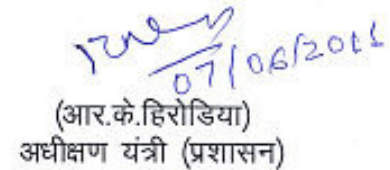 07/06/2011
(आर.के.हिरोडिया)
अधीक्षण यंत्री (प्रशासन)